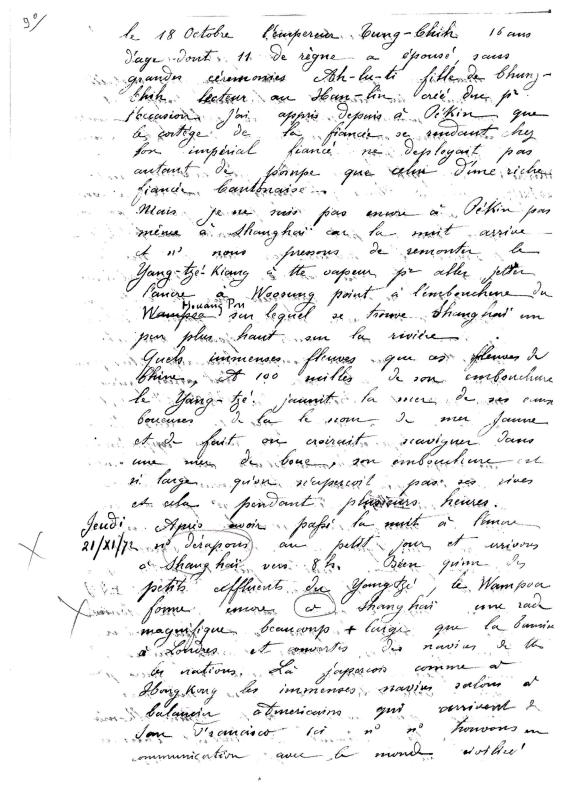 9°/
le 18 Octobre l'empereur Tung-Chih 16 ans
d'age dont 11 de règne a épousé sans
grandes cérémonies Ah-lu-ti fille de Chung-
Chih lecteur au Han-lin créé duc pr
l'occasion j'ai appris depuis à Pékin que
le cortège de la fiancée se rendant chez
son impérial fiancé ne deployait pas
autant de pompe que celui d'une riche
fiancée Cantonaise.
Mais je ne suis pas encore à Pékin pas
même à Shanghaï car la nuit arrive
et ns nous pressons de remonter le
Yang-tzé-Kiang à tte vapeur pr aller jeter
l'ancre à Woosung point à l'embouchure du
Houang Pou
Wampoa, sur lequel se trouve Shanghaï un
peu plus haut sur la rivière.
Quels immenses fleuves que ces fleuves de
Chine, A 100 milles de son embouchure
le Yang-tzé jaunit la mer de ses eaux
boueuses de la le nom de mer Jaune
et de fait on croirait naviguer dans
une mer de boue, son embouchure est
si large qu'on n'aperçoit pas ses rives
et cela pendant plusieurs heures.
Jeudi Après avoir passé la nuit à l'ancre
21/XI/72 ns dérapons au petit jour et arrivons
à Shanghaï vers 8h. Bien qu'un des
petits affluents du Yangtzé le Wampoa
forme encore à Shanghaï une rade
magnifique beaucoup + large que la Tamise
à Londres et couverte des navires de ttes
les nations. Là j'aperçois comme à
Hong Kong les immenses navires salons à
balancier américains qui arrivent de
San Francisco ici ns ns trouvons en
communication avec le monde civilisé